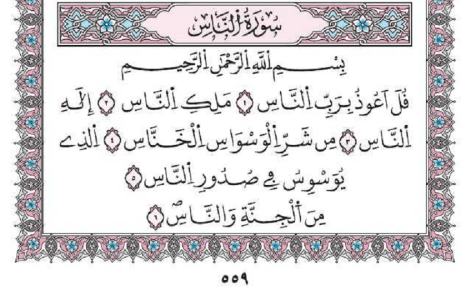 سُورَةُ النَّاسِ
بِسْمِ اللَّهِ الرَّحْمَٰنِ الرَّحِيمِ
قُلْ أَعُوذُ بِرَبِّ النَّاسِ ١ مَلِكِ النَّاسِ ٢ إِلَٰهِ
النَّاسِ ٣ مِن شَرِّ الْوَسْوَاسِ الْخَنَّاسِ ٤ الَّذِے
يُوَسْوِسُ فِے صُدُورِ النَّاسِ ٥
مِنَ الْجِنَّةِ وَالنَّاسِ ٦
٥٥٩